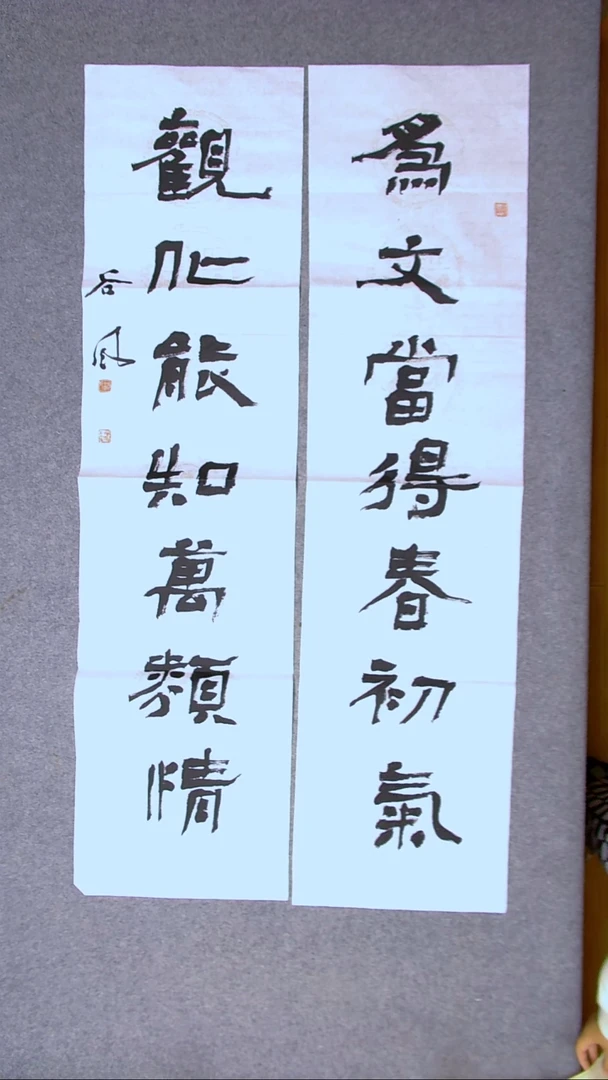 為文當得春初氣
觀化能知萬類情
谷風